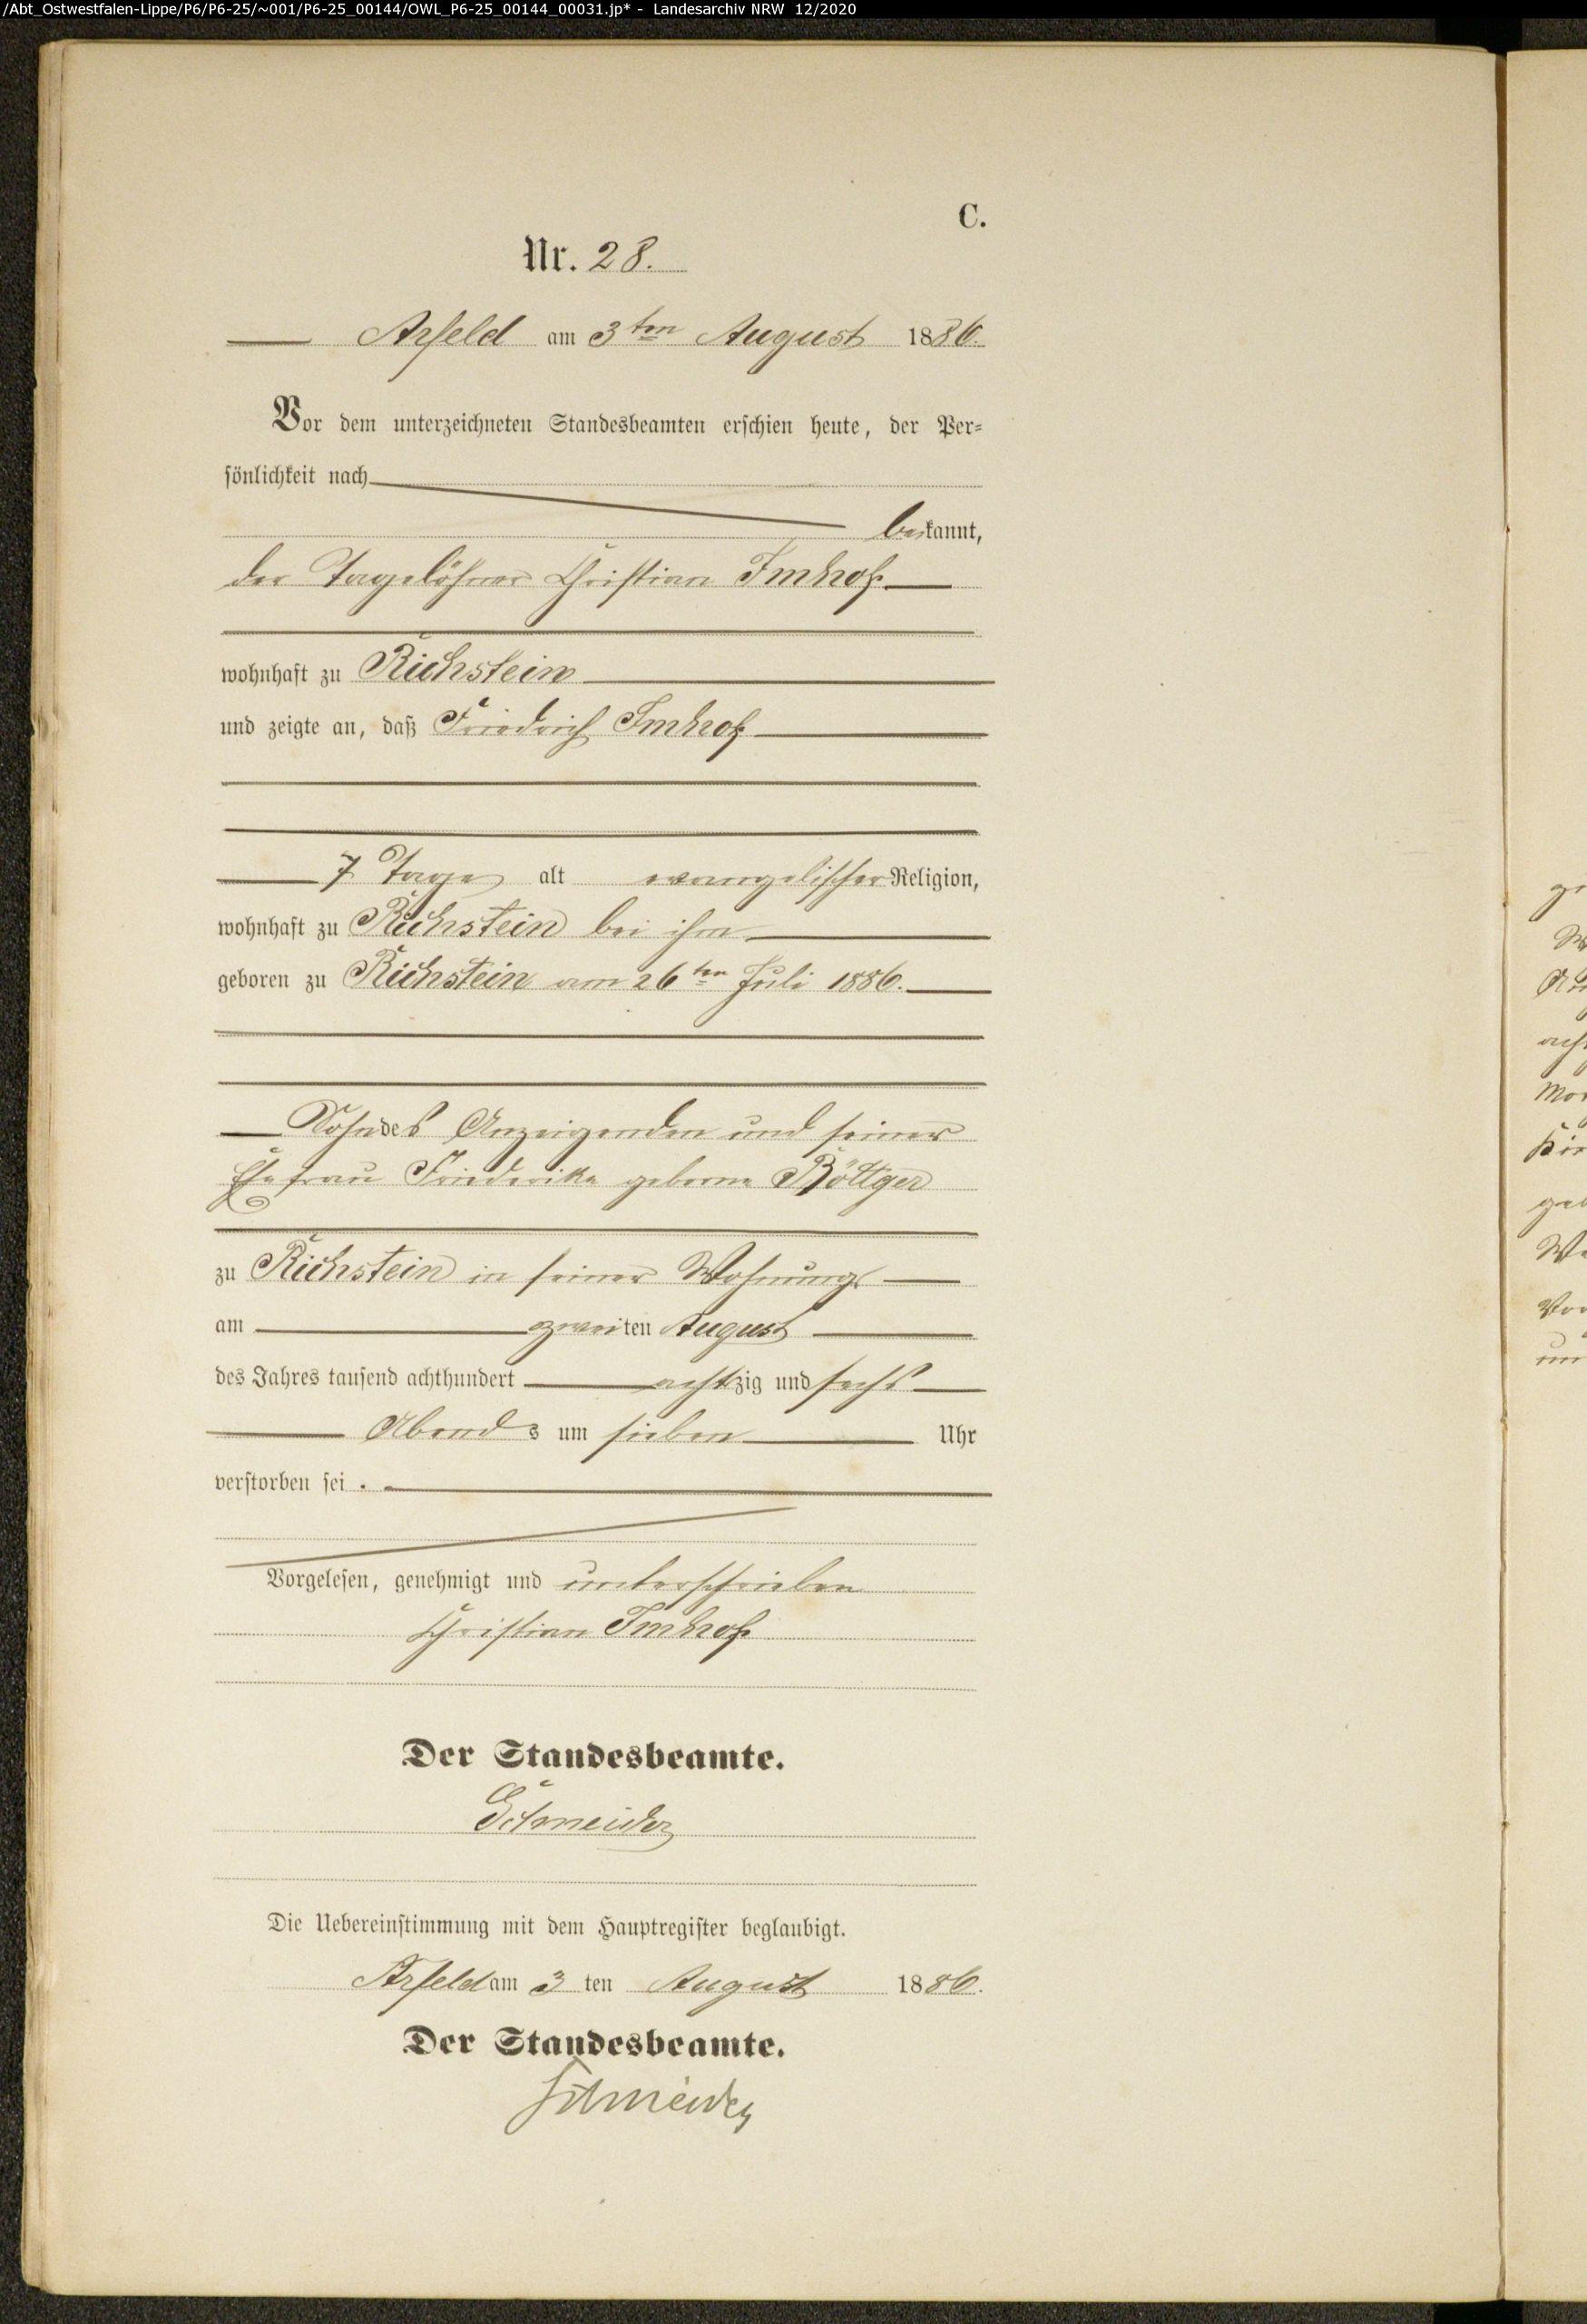 /Abt_Ostwestfalen-Lippe/P6/P6-25/~001/P6-25_00144/OWL_P6-25_00144_00031.jp* - Landesarchiv NRW 12/2020
C.
Nr. 28.
Arfeld am 3ten August 1886.
Vor dem unterzeichneten Standesbeamten erschien heute, der Per=
sönlichkeit nach
bekannt,
der Tagelöhner Christian Imhof
wohnhaft zu Richstein
und zeigte an, daß Friedrich Imhof
7 Tage alt evangelischer Religion,
wohnhaft zu Richstein bei ihm
geboren zu Richstein am 26ten Juli 1886.
Sohn des Anzeigenden und seiner
Ehefrau Friederike geborne Böttger
zu Richstein in seiner Wohnung
am zweiten August
des Jahres tausend achthundert achtzig und sechs
Abends um sieben Uhr
verstorben sei.
Vorgelesen, genehmigt und unterschrieben
Christian Imhof
Der Standesbeamte.
Schneider
Die Uebereinstimmung mit dem Hauptregister beglaubigt.
Arfeld am 3 ten August 1886.
Der Standesbeamte.
Schneider